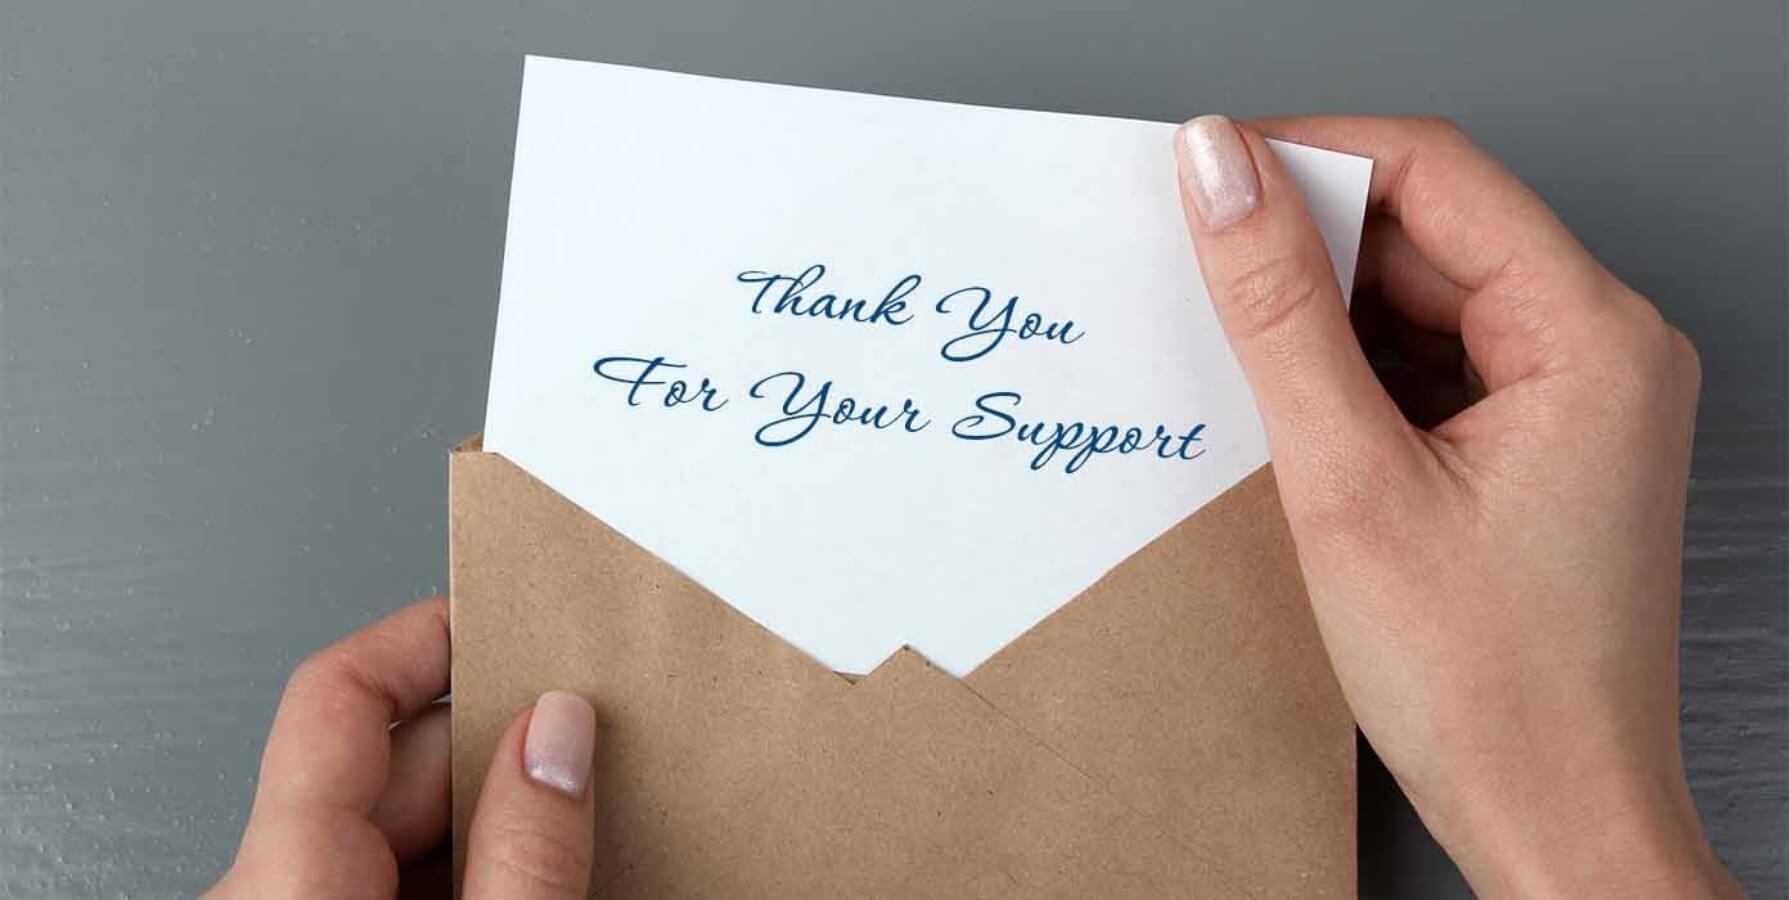 Thank You
For Your Support